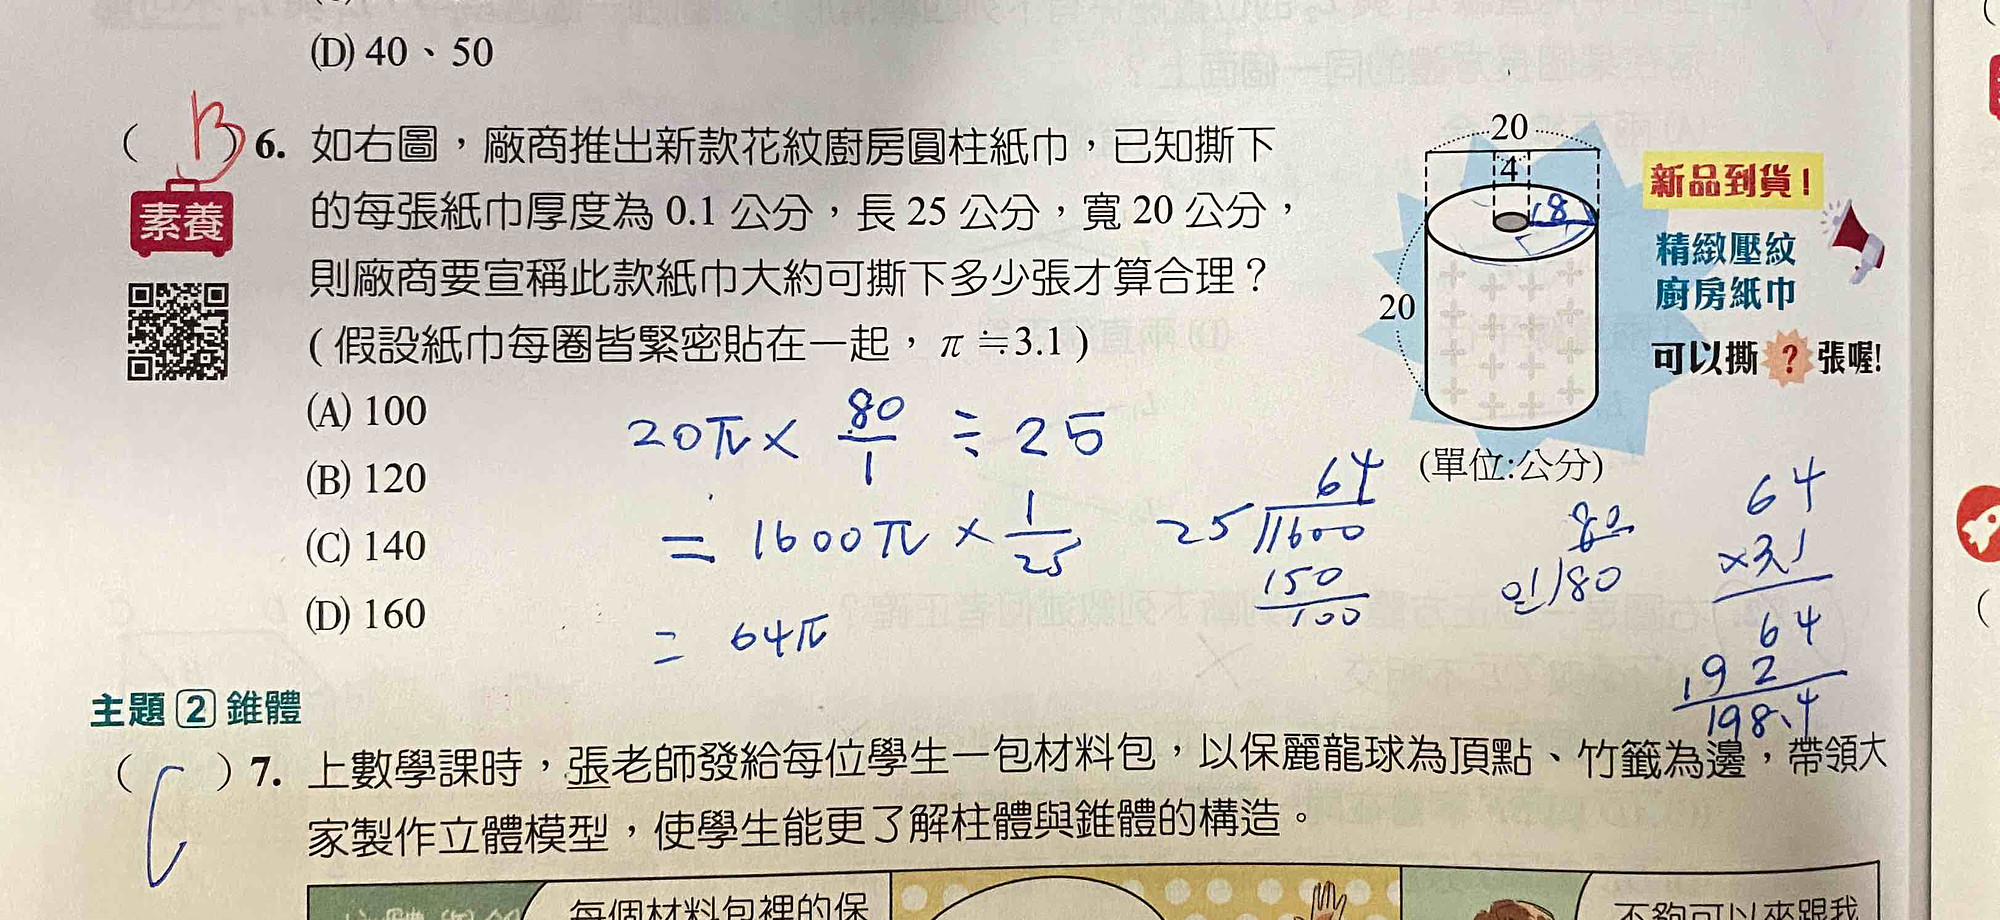 (D) 40、50
( B ) 6. 如右圖，廠商推出新款花紋廚房圓柱紙巾，已知撕下
素養
的每張紙巾厚度為 0.1 公分，長 25 公分，寬 20 公分，
則廠商要宣稱此款紙巾大約可撕下多少張才算合理？
(假設紙巾每圈皆緊密貼在一起，π≒3.1)
(A) 100
(B) 120
(C) 140
(D) 160
20
4
8
20
(單位:公分)
新品到貨！
精緻壓紋
廚房紙巾
可以撕 ? 張喔!
20π × 80/1 ÷ 25
= 1600π × 1/25
= 64π
64
25 )1600
150
100
80
0.1)80
64
×3.1
64
192
198.4
主題 2 錐體
( C ) 7. 上數學課時，張老師發給每位學生一包材料包，以保麗龍球為頂點、竹籤為邊，帶領大
家製作立體模型，使學生能更了解柱體與錐體的構造。
每個材料包裡的保
不夠可以來跟我